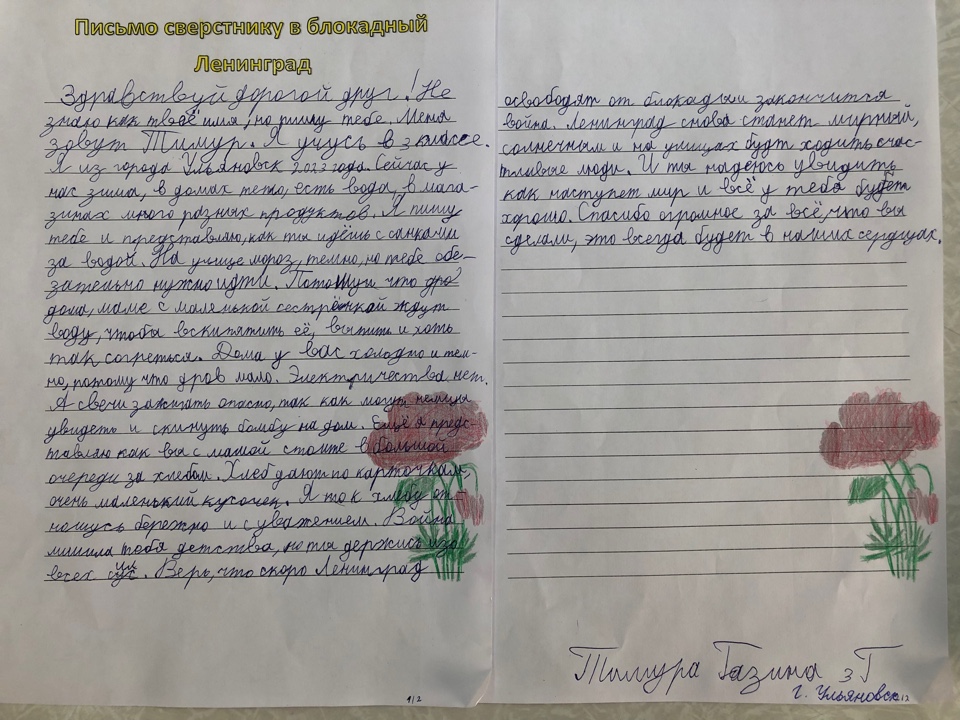 Письмо сверстнику в блокадный
Ленинград
Здравствуй дорогой друг! Не
знаю как твоё имя, но пишу тебе. Меня
зовут Тимур. Я учусь в 3 классе.
Я из города Ульяновск 2023 года. Сейчас у
нас зима, в домах тепло, есть вода, в мага-
зинах много разных продуктов. Я пишу
тебе и представляю, как ты идёшь с санками
за водой. На улице мороз, темно, но тебе обе-
зательно нужно идти. Потому что
дома, маме с маленькой сестрёнкой ждут
воду, чтобы вскипятить её, выпить и хоть
так согреться. Дома у вас холодно и тем-
но, потому что дров мало. Электричества нет.
А свечи зажигать опасно, так как могут немцы
увидеть и скинуть бомбу на дом. Ещё я предс-
тавляю как вы с мамой стоите в большой
очереди за хлебом. Хлеб дают по карточкам,
очень маленький кусочек. Я то к хлебу от-
ношусь бережно и с уважением. Война
лишила тебя детства, но ты держись изо
всех сил. Верь, что скоро Ленинград
освободят от блокады и закончится
война. Ленинград снова станет мирный,
солнечным и на улицах будт ходить счас-
тливые люди. И ты надеюсь увидить
как наступет мир и всё у тебя будет
хорошо. Спасибо огромное за всё, что вы
сделали, это всегда будет в наших сердцах.
Тимура Газина 3 Г
г. Ульяновск
1/2